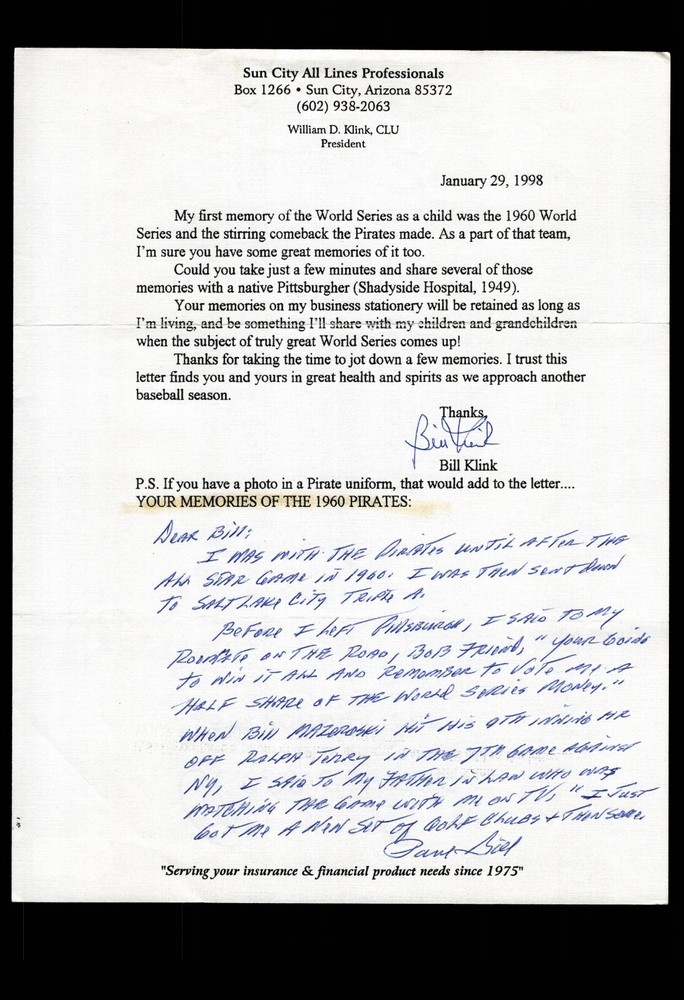 Sun City All Lines Professionals
Box 1266 • Sun City, Arizona 85372
(602) 938-2063
William D. Klink, CLU
President
January 29, 1998
My first memory of the World Series as a child was the 1960 World
Series and the stirring comeback the Pirates made. As a part of that team,
I'm sure you have some great memories of it too.
Could you take just a few minutes and share several of those
memories with a native Pittsburgher (Shadyside Hospital, 1949).
Your memories on my business stationery will be retained as long as
I'm living, and be something I'll share with my children and grandchildren
when the subject of truly great World Series comes up!
Thanks for taking the time to jot down a few memories. I trust this
letter finds you and yours in great health and spirits as we approach another
baseball season.
Thanks,
Bill Klink
Bill Klink
P.S. If you have a photo in a Pirate uniform, that would add to the letter....
YOUR MEMORIES OF THE 1960 PIRATES:
DEAR BILL:
I WAS WITH THE PIRATES UNTIL AFTER THE
ALL STAR GAME IN 1960. I WAS THEN SENT DOWN
TO SALT LAKE CITY TRIPLE A.
BEFORE I LEFT PITTSBURGH, I SAID TO MY
ROOMATE ON THE ROAD, BOB FRIEND, "YOUR GOING
TO WIN IT ALL AND REMEMBER TO VOTE ME A
HALF SHARE OF THE WORLD SERIES MONEY."
WHEN BILL MAZEROSKI HIT HIS 9TH INNING HR
OFF RALPH TERRY IN THE 7TH GAME AGAINST
NY, I SAID TO MY FATHER IN LAW WHO WAS
WATCHING THE GAME WITH ME ON TV, "I JUST
GOT ME A NEW SET OF GOLF CLUBS & THEN SOME.
"Serving your insurance & financial product needs since 1975"